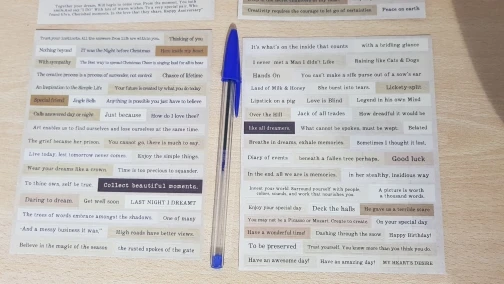 Together your wishes, will begin to come true. From the moment, You walk
Beautiful. Cherished moments. To the love that they share. Happy Anniversary
Creativity requires the courage to let go of certainties
Peace on earth
Trust your instincts. All the answers from Life are within you.
Thinking of you
Nothing beyond
It was the Night before Christmas
You made my heart
With sympathy
The best way to spread Christmas Cheer is singing loud for all to hear
The creative process is a process of surrender, not control
Chance of lifetime
An Inspiration to the Simple Life
Your future is created by what you do today
Special friend
Jingle Bells
Anything is possible you just have to believe
Calls answered day or night
Just because
How do I love thee?
Art enables us to find ourselves and lose ourselves at the same time
The grief became her prison.
You cannot go, there is much to eat
Live today, lest tomorrow never comes.
Enjoy the simple things.
Wear your dreams like a crown.
Time is too precious to squander.
To thine own, self be true.
Collect beautiful moments.
Daring to dream.
Get well soon
LAST NIGHT I DREAMT
The trees of words embrace amongst the shadows.
One of many
And a messy business it was."
High roads have better views.
Believe in the magic of the season
the rusted spokes of the gate
It's what's on the inside that counts
with a bridling glance
I never met a Man I didn't Like
Raining like Cats & Dogs
Hands On
You can't make a silk purse out of a sow's ear
Land of Milk & Honey
She burst into tears.
Lickety-split
Lipstick on a pig
Love is Blind
Legend in his own Mind
Over the Hill
Jack of all trades
How dreadful it would be
like all dreamers.
What cannot be spoken, must be wept.
Belated
Breathe in dreams, exhale memories.
Sometimes I thought it best.
Diary of events
beneath a fallen tree perhaps.
Good luck
In the end, all we are is memories.
in her stealthy, insidious way
Invest your world Surround yourself with people
colors, sounds, and work that nourishes you
A picture is worth
a thousand words.
Enjoy your special day
Deck the halls
He gave us a terrible scare
You may not be a Picasso or Mozart Create to create
On your special day
Have a wonderful time!
Dashing through the snow
Happy Birthday!
To be preserved
Trust yourself. You know more than you think you do.
Have an awesome day!
Have an amazing day!
MY HEART'S DESIRE